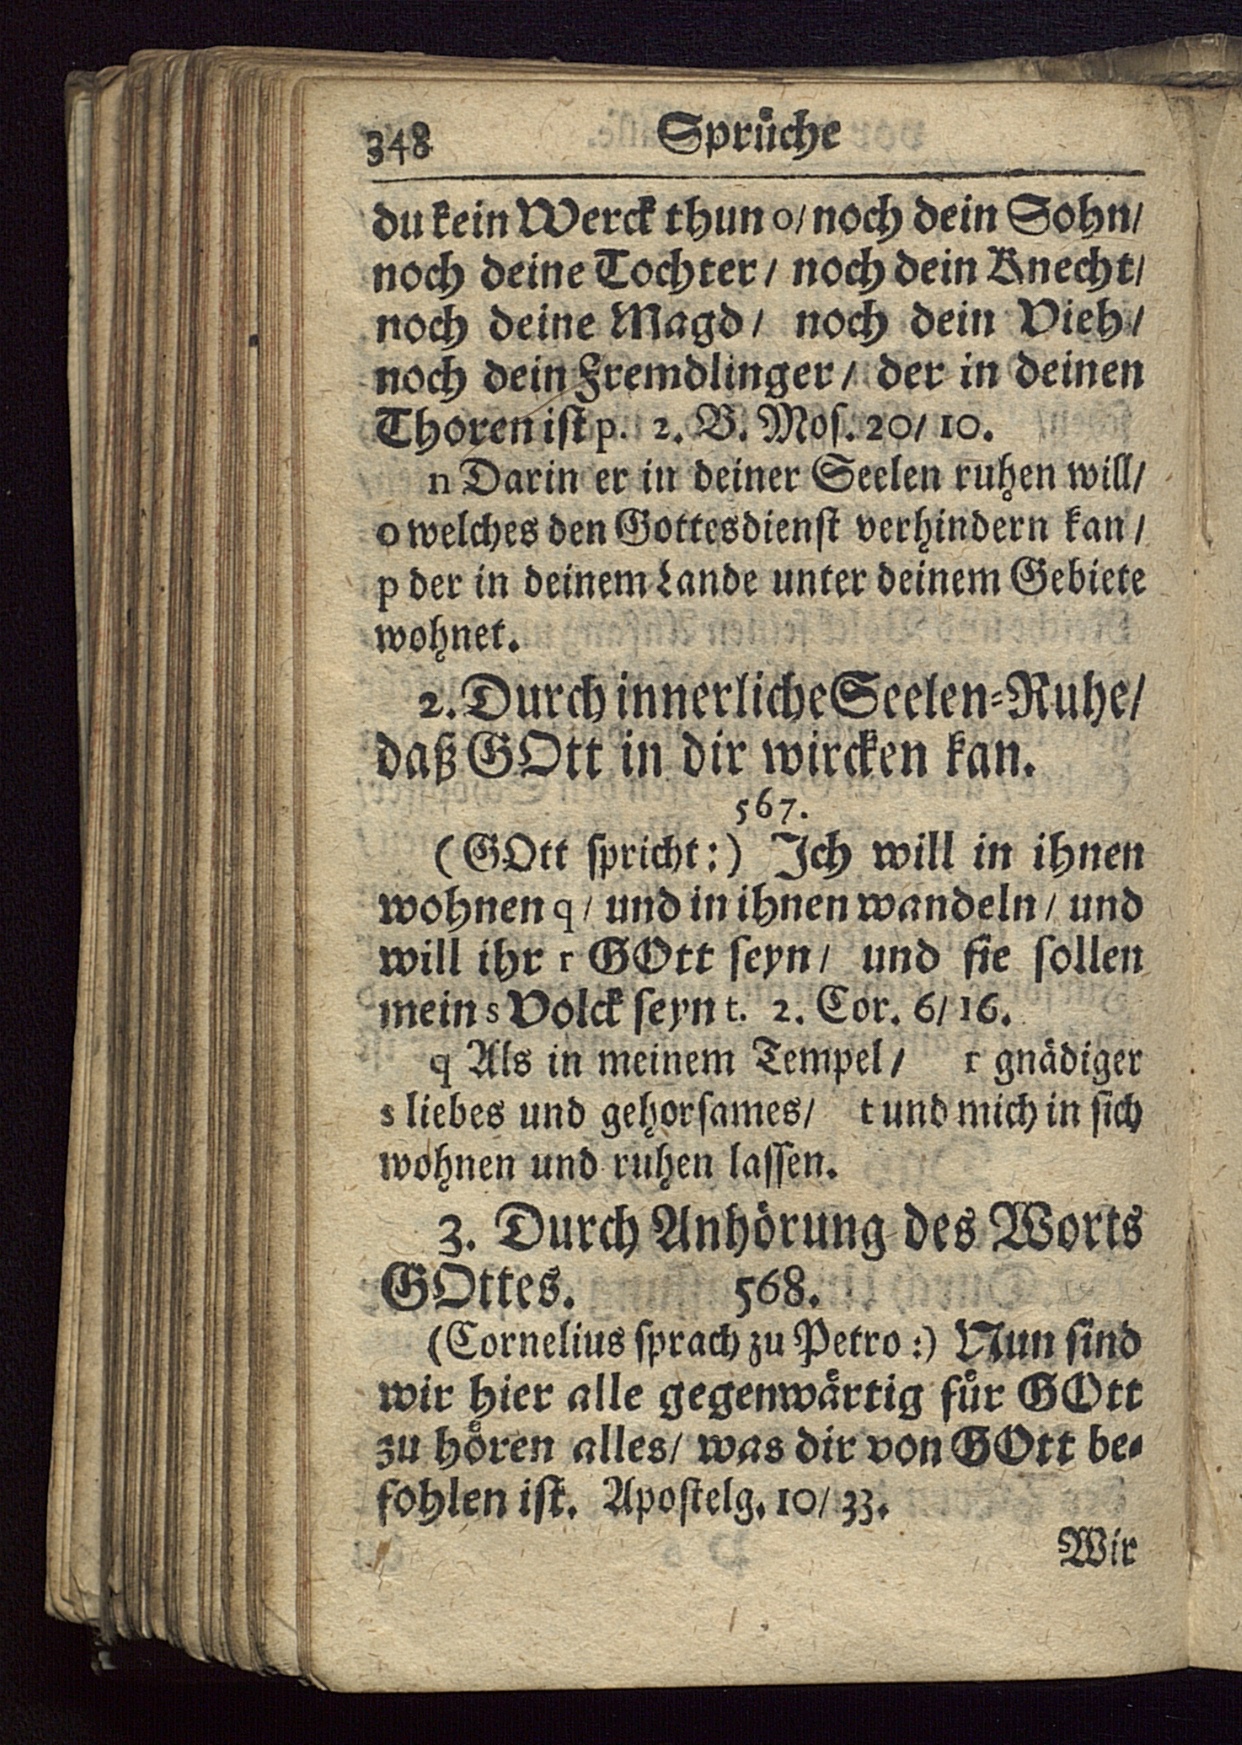 348 Spruͤche
du kein Werck thun o/ noch dein Sohn/
noch deine Tochter/ noch dein Knecht/
noch deine Magd/ noch dein Vieh/
noch dein Fremdlinger/ der in deinen
Thoren ist p. 2. B. Mos. 20/ 10.
n Darin er in deiner Seelen ruhen will/
o welches den Gottesdienst verhindern kan/
p der in deinem Lande unter deinem Gebiete
wohnet.
2. Durch innerliche Seelen-Ruhe/
daß GOtt in dir wircken kan.
567.
(GOtt spricht:) Ich will in ihnen
wohnen q/ und in ihnen wandeln/ und
will ihr r GOtt seyn/ und sie sollen
mein s Volck seyn t. 2. Cor. 6/ 16.
q Als in meinem Tempel/ r gnädiger
s liebes und gehorsames/ t und mich in sich
wohnen und ruhen lassen.
3. Durch Anhörung des Worts
GOttes. 568.
(Cornelius sprach zu Petro:) Nun sind
wir hier alle gegenwaͤrtig fuͤr GOtt
zu hoͤren alles/ was dir von GOtt be-
fohlen ist. Apostelg. 10/ 33.
Wir